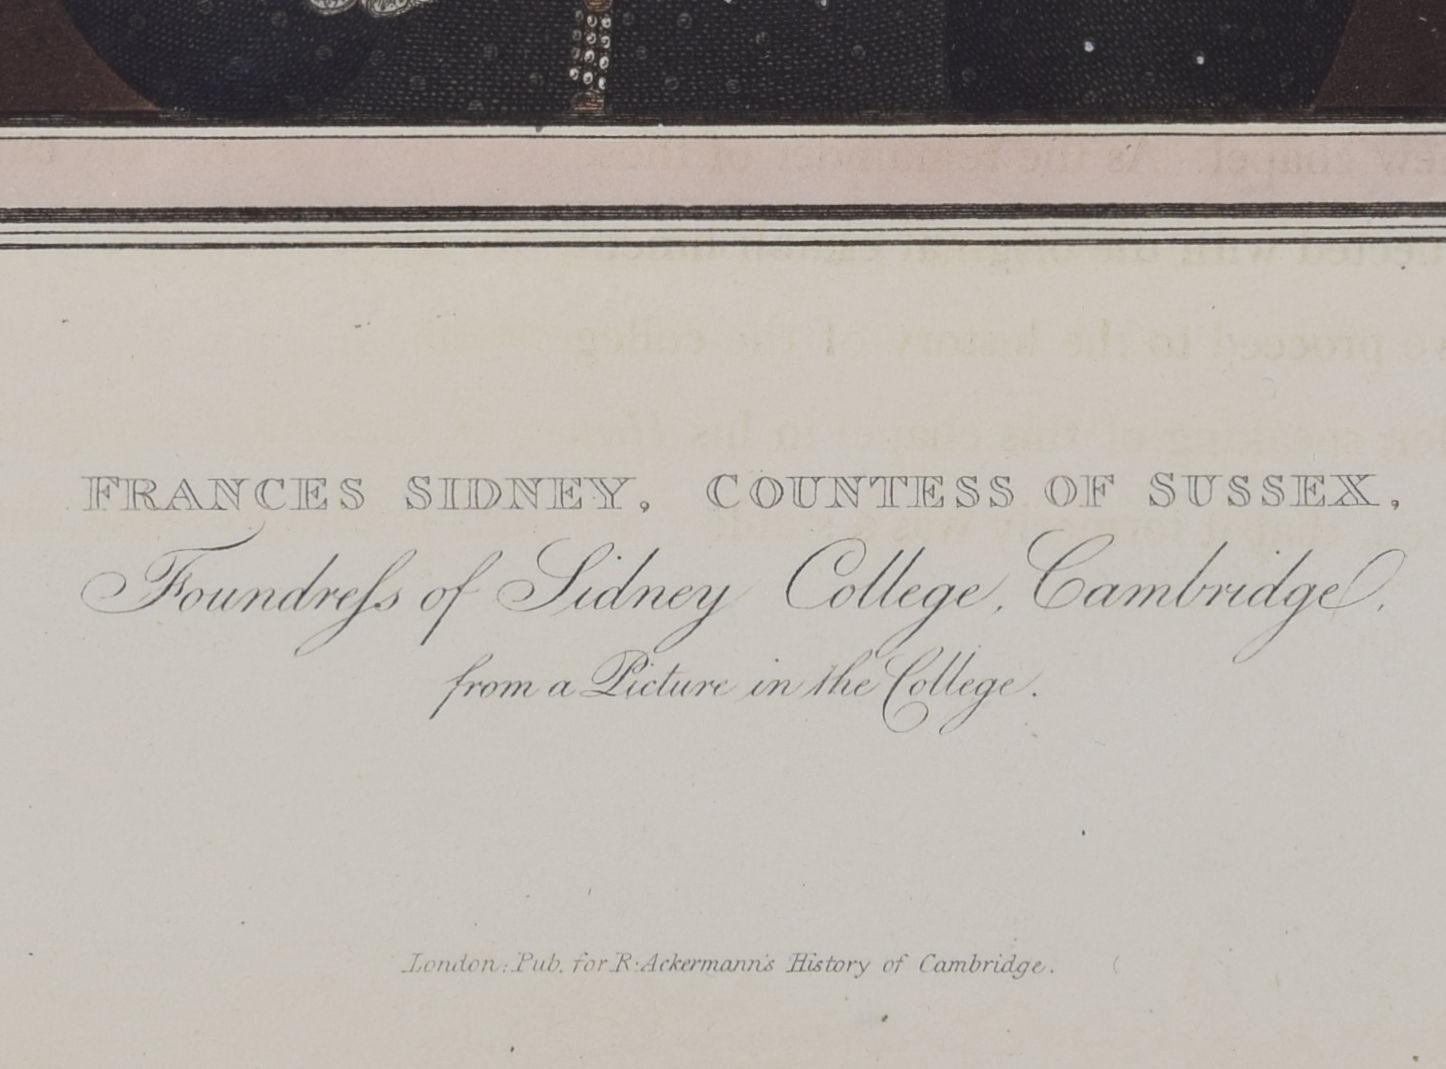 FRANCES SIDNEY, COUNTESS OF SUSSEX,
Foundreſs of Sidney College, Cambridge.
from a Picture in the College.
London: Pub. for R. Ackermann's History of Cambridge.